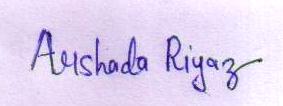 Arshada Riyaz